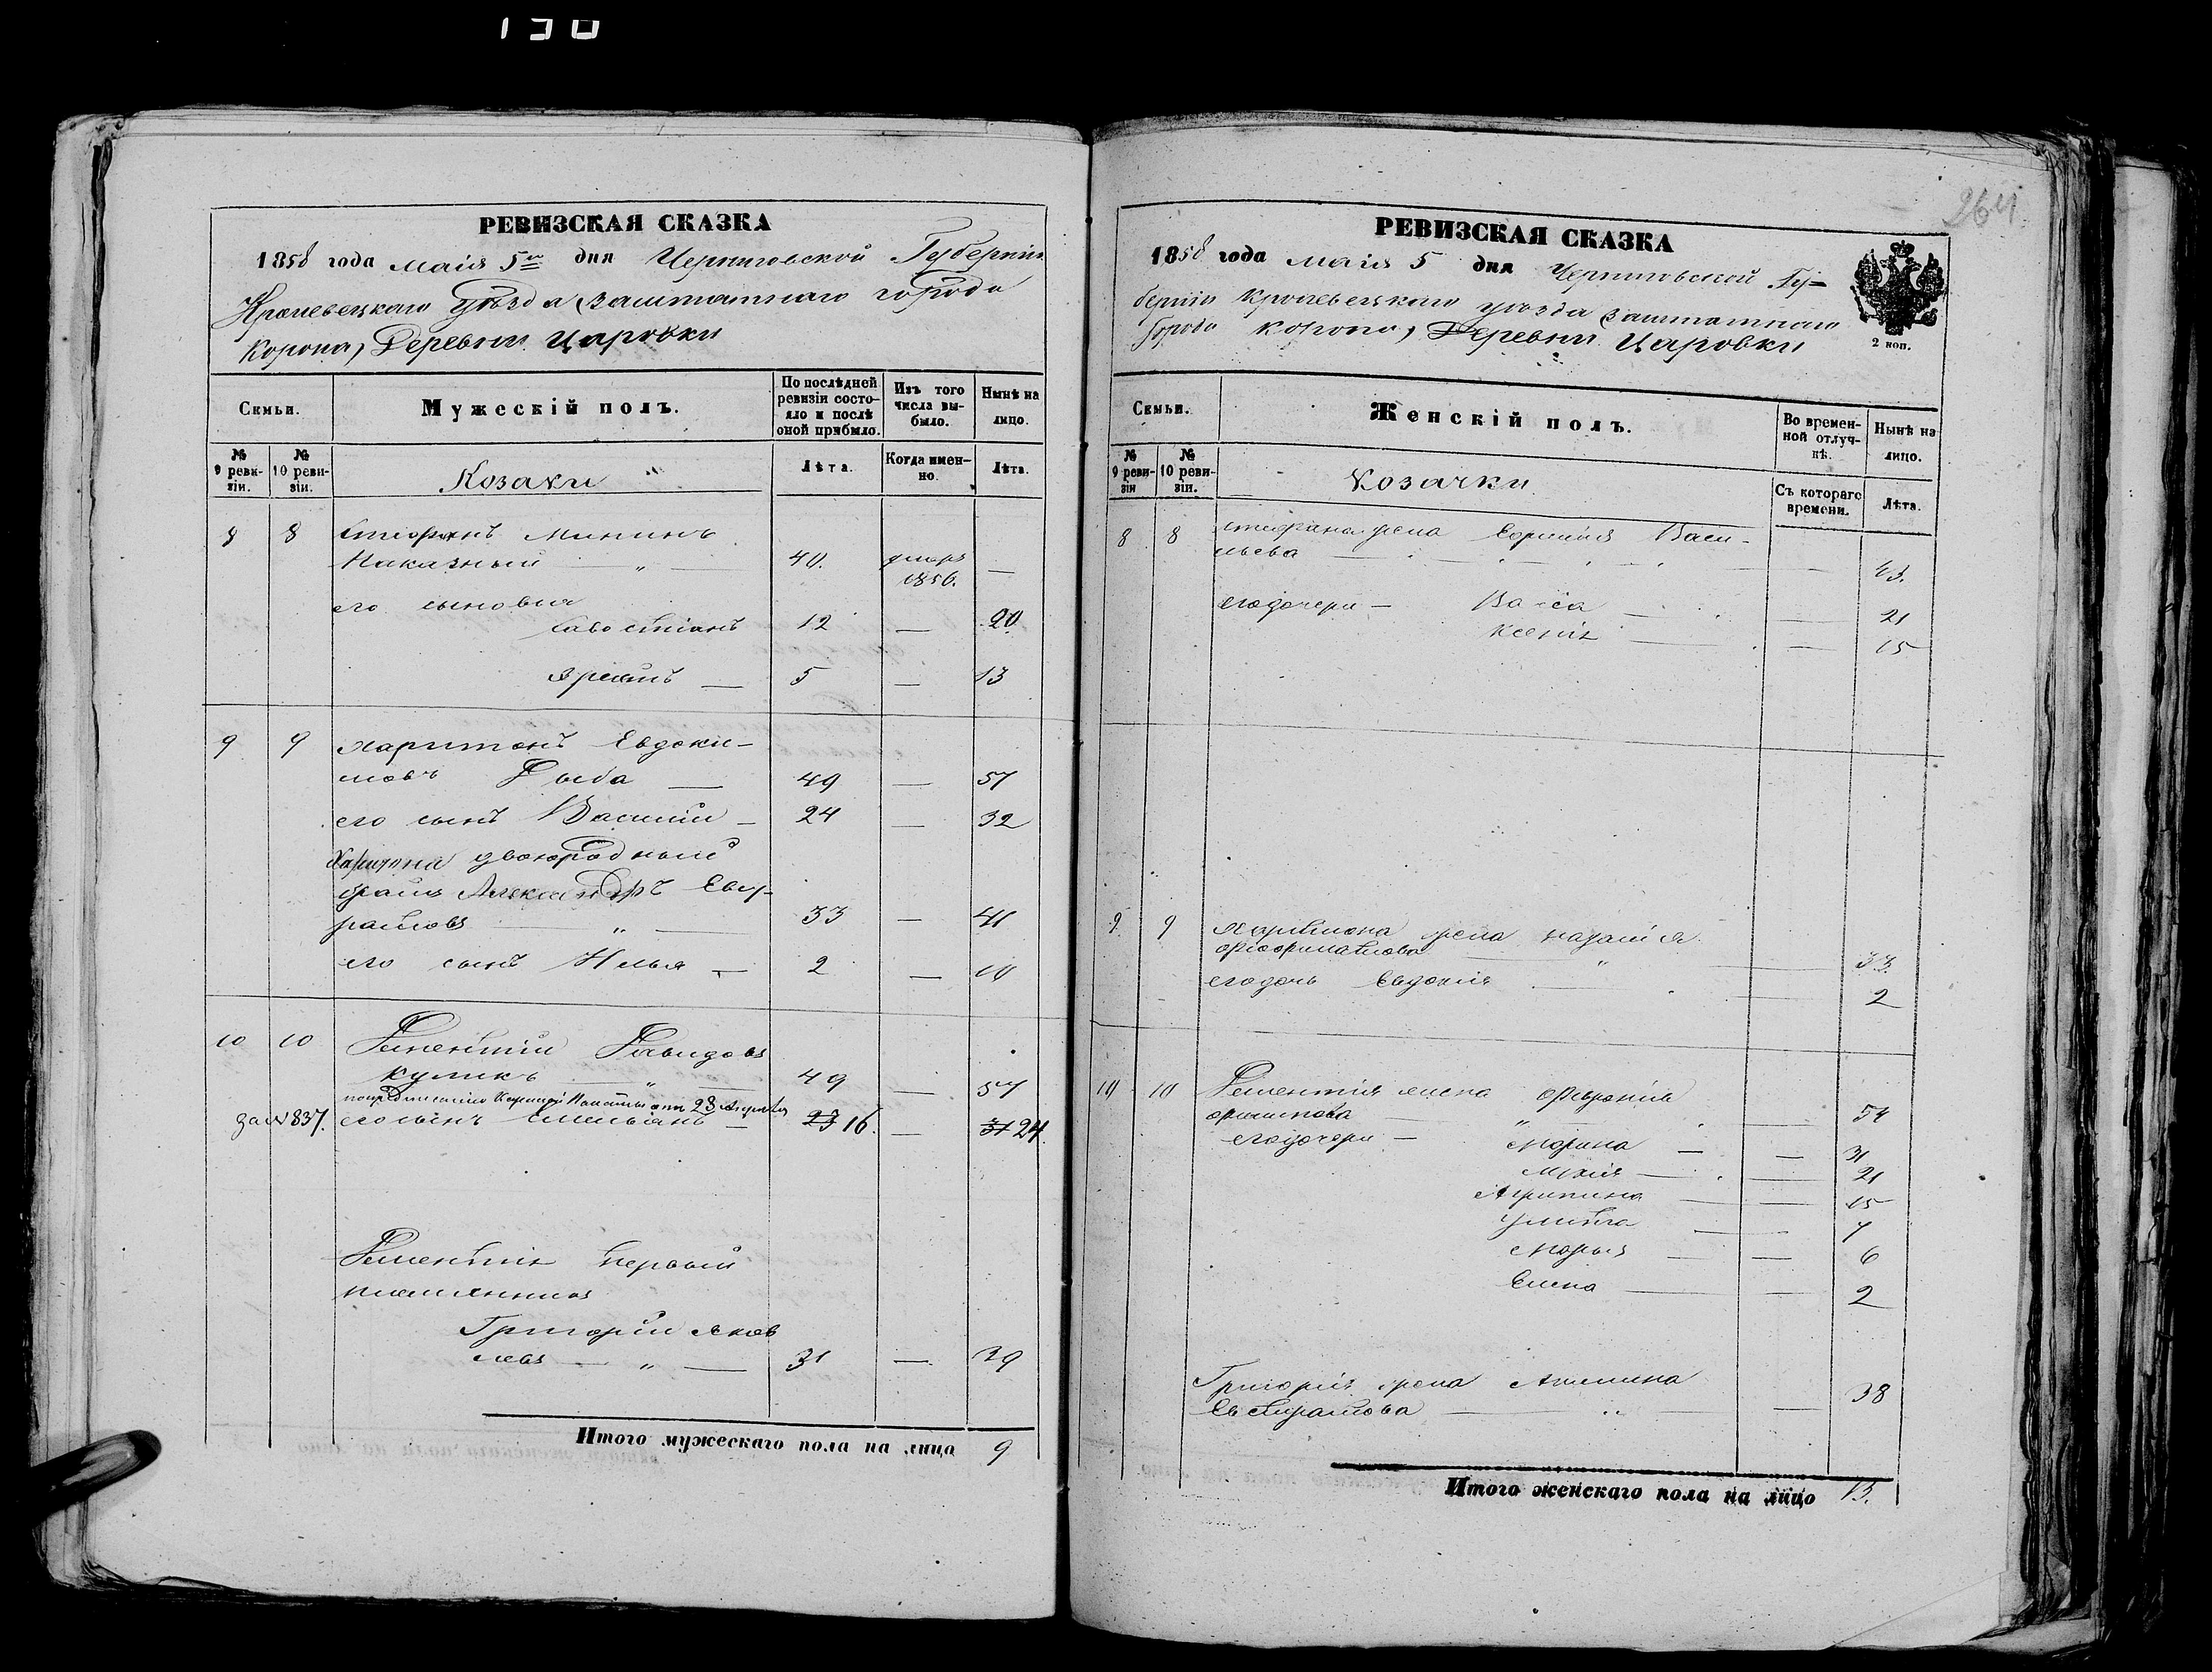 130
РЕВИЗСКАЯ СКАЗКА
1858 года маія 5го дня Черниговской Губерніи
Кролевецкаго Уѣзда (Заштатнаго города
Коропа) Деревни Царовки
Семьи.
Мужескій полъ.
По послѣдней ревизіи состояло и послѣ оной прибыло.
Изъ того числа выбыло.
Нынѣ на лицо.
№ 9 ревизіи.
№ 10 ревизіи.
Козаки
Лѣта.
Когда именно.
Лѣта.
8 8 Стефанъ Мининъ
Наказный — " — 40. умеръ 1856. —
его сыновья
Савостіанъ 12 — 20
5 — 13
9 9 Харитонъ Евдоки-
мовъ Рыба — 49 — 57
его сынъ Василий — 24 — 32
Харитона двоюродный
братъ Александръ
33 — 41
его сынъ Илья — 2 — 10
10 10 Давидовъ
Куликъ — " — 49 — 57
по предписанію Казенной Палаты отъ 28 Апреля
за №837. его сынъ Емельянъ — 23 16. — 31 24.
первый
племянникъ
Григорій Яков
левъ — " — 31 — 39
Итого мужескаго пола на лицо 9
264
РЕВИЗСКАЯ СКАЗКА
1858 года маія 5 дня Черниговской Гу-
берніи Кролевецкаго уѣзда (заштатнаго
Города Коропа) Деревни Царовки
2 коп.
Семьи.
Женскій полъ.
Во временной отлучкѣ.
Нынѣ на лицо.
№ 9 ревизіи
№ 10 ревизіи.
Козачки
Съ котораго времени.
Лѣта.
8 8 Стефана жена Васи-
льева — — 43.
его дочери — Васса — — 21
Ксенія — — 15
9 9 Харитона жена
— " — 33
его дочь Евдокія — — 2
10 10 жена
— " — 54
его дочери — Марина — — 31
— — 21
Агрипина — — 15
Улита — — 7
Марья — — 6
Елена — — 2
Григорія жена Акилина
Евстратова — " — 38
Итого женскаго пола на лицо 13.